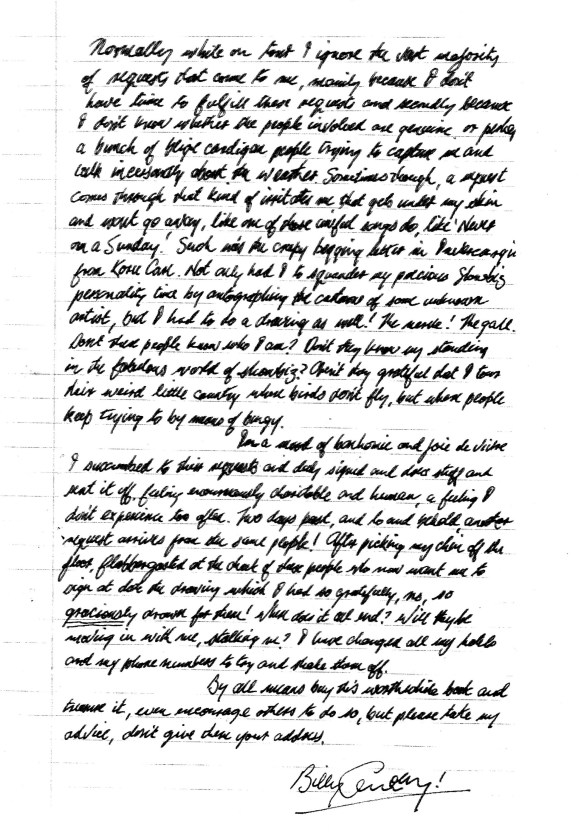 Normally while on tour I ignore the vast majority
of requests that come to me, mainly because I don't
have time to fulfill these requests and secondly because
I don't know whether the people involved are genuine or
a bunch of beige cardigan people trying to capture me and
talk incessantly about the weather. Sometimes though, a request
comes through that kind of irritates me that gets under my skin
and wont go away, like one of those awful songs do, like 'Never
on a Sunday'. Such was the crappy begging letter in
from Case. Not only had I to squander my precious Showbiz
personality time by autographing the cartoon of some unknown
artist, but I had to do a drawing as well! The nerve! The gall.
Dont these people know who I am? Dont they know my standing
in the fabulous world of showbiz? Aren't they grateful that I tour
their weird little country where birds don't fly, but where people
keep trying to by means of bungy.
In a mood of bonhomie and joie de vivre
I succumbed to their requests and duly signed and drew stuff and
sent it off, feeling enormously charitable and human, a feeling I
don't experience too often. Two days past, and lo and behold, another
request arrives from the same people! After picking my chin off the
floor, flabbergasted at the cheek of these people who now want me to
sign at dot the drawing which I had so gratefully, no, so
graciously drawn for them! When does it all end? Will they be
moving in with me, stalking me? I have changed all my hotels
and my phone numbers to try and shake them off.
By all means buy this worthwhile book and
treasure it, even encourage others to do so, but please take my
advice, don't give them your address.
Billy Connolly!